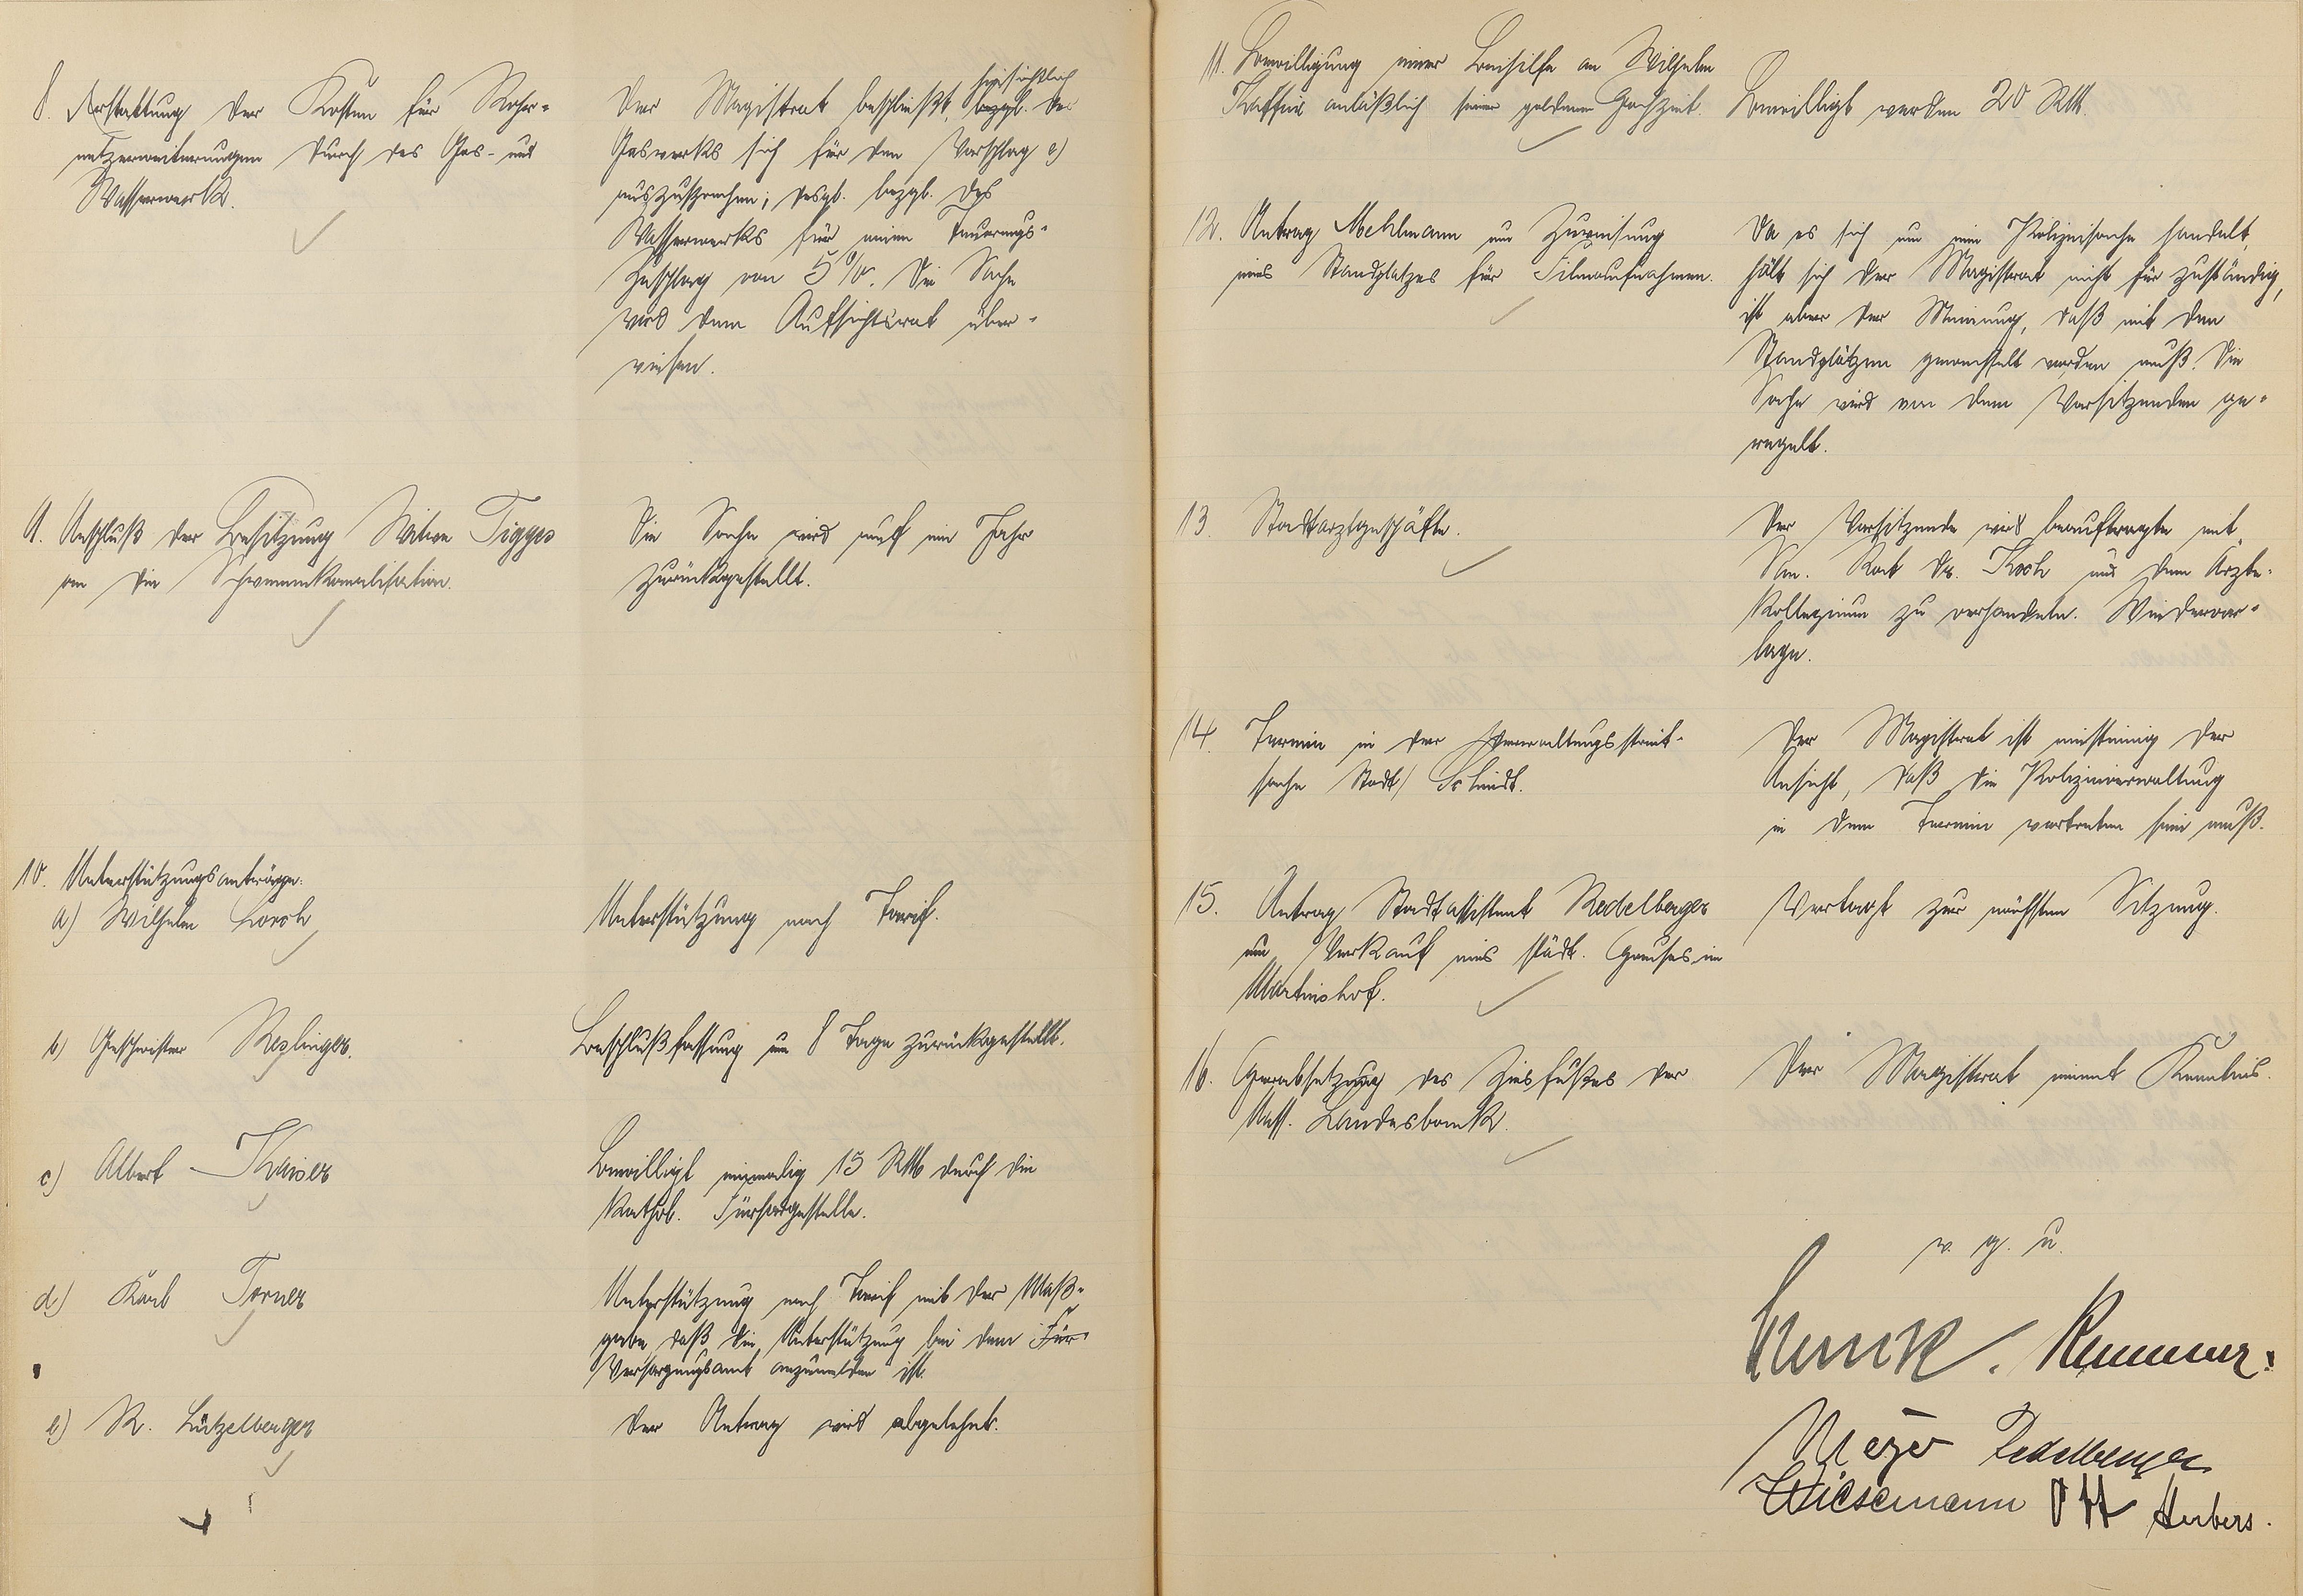 8. Erstattung der Kosten für Rohr-
netzerweiterungen durch das Gas- und
Wasserwerk.
hinsichtlich
Der Magistrat beschließt, bezgl. des
Gaswerks sich für den Vorschlag e)
auszusprechen; desgl. bezgl. des
Wasserwerks für einen Teuerungs-
zuschlag von 5%. Die Sache
wird dem Aufsichtsrat über-
wiesen.
9. Anschluß der Besitzung Witwe Tigges
an die Schwemmkanalisation.
Die Sache wird auf ein Jahr
zurückgestellt.
10. Unterstützungsanträge:
a) Wilhelm Lorch
Unterstützung nach Tarif.
b) Geschwister Reglinger.
Beschlußfassung um 8 Tage zurückgestellt.
c) Albert Kaiser
Bewilligt einmalig 15 RM durch die
Kathol. Fürsorgestelle.
d) Karl Torner
Unterstützung nach Tarif mit der Maß-
gabe, daß die Unterstützung bei dem Für-
Versorgungsamt anzumelden ist.
e) R. Lützelberger
Der Antrag wird abgelehnt.
11. Bewilligung einer Beihilfe an Wilhelm
anläßlich seiner goldenen Hochzeit.
Bewilligt werden 20 RM.
12. Antrag Mehlmann um Zuweisung
eines Standplatzes für Filmaufnahmen.
Da es sich um eine Polizeisache handelt,
hält sich der Magistrat nicht für zuständig,
ist aber der Meinung, daß mit den
Standplätzen gewechselt werden muß. Die
Sache wird von dem Vorsitzenden ge-
regelt.
13. Stadtarztgeschäfte.
Der Vorsitzende wird beauftragt mit
San. Rat Dr. Koch und dem Ärzte-
kollegium zu verhandeln. Wiedervor-
lage.
14. Termin in der Verwaltungsstreit-
sache Stadt/ Schmidt.
Der Magistrat ist einstimmig der
Ansicht, daß die Polizeiverwaltung
in dem Termin vertreten sein muß.
15. Antrag Stadtassistent Redelberger
um Verkauf eines städt. Hauses im
Martinshof.
Vertagt zur nächsten Sitzung.
16. Herabsetzung des Zinsfußes der
Nass. Landesbank.
Der Magistrat nimmt Kenntnis.
v. g. u.
Meyer Redelberger
Wiesemann Ott Herbers.